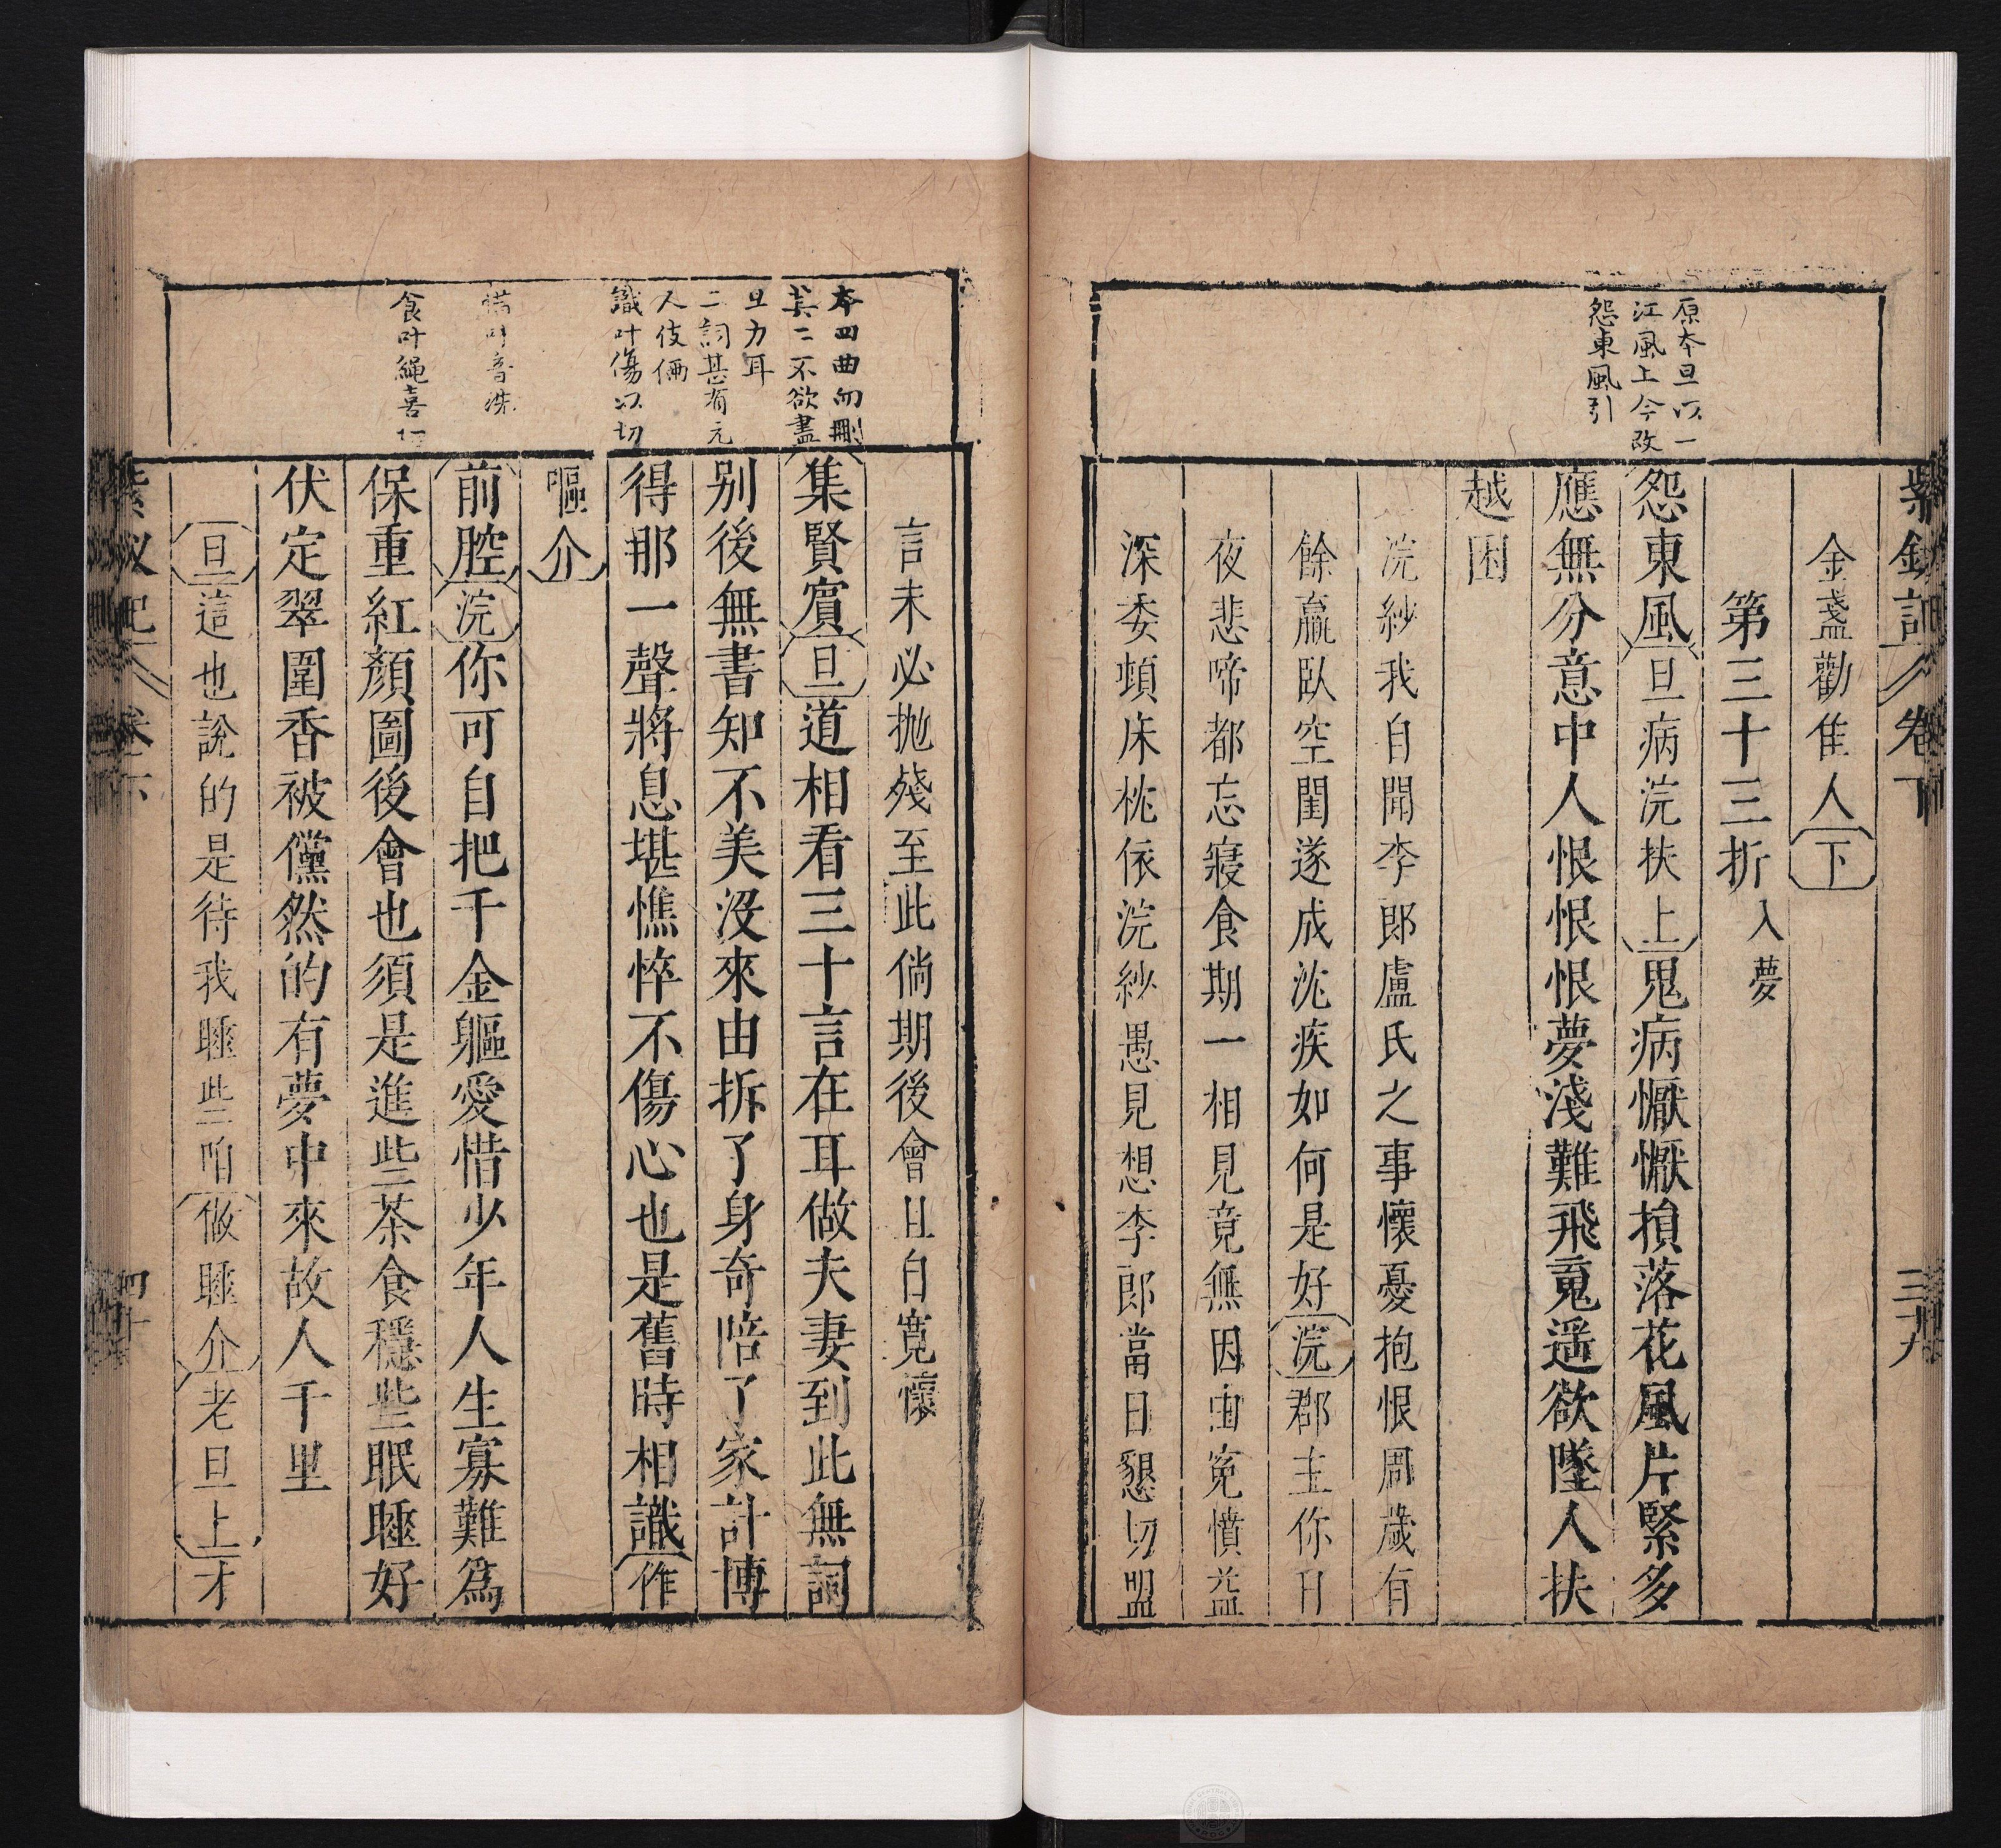 紫釵記 卷下 三十九
金盞勸佳人下
第三十三折 入夢
原本旦以一
江風上今改
怨東風引
怨東風旦病浣扶上鬼病懨懨損落花風片緊多
應無分意中人恨恨恨夢淺難飛魂遥欲墜人扶
越困
浣紗我自聞李郎盧氏之事懷憂抱恨周歲有
餘羸臥空閨遂成沈疾如何是好浣郡主你日
夜悲啼都忘寢食期一相見竟無因由寃憤益
深委頓床枕依浣紗愚見想李郎當日懇切盟
言未必抛殘至此倘期後會且自寬懷
本四曲勿刪
其二不欲盡
旦力耳
二詞甚有元
人伎倆
識叶傷以切
惜叶音洗
食叶繩喜切
集賢賓旦道相看三十言在耳做夫妻到此無詞
別後無書知不美没來由拆了身奇陪了家計博
得那一聲將息堪憔悴不傷心也是舊時相識作
嘔介
前腔浣你可自把千金軀愛惜少年人生寡難為
保重紅顏圖後會也須是進些茶食穩些眠睡好
伏定翠圍香被儻然的有夢中來故人千里
旦這也說的是待我睡些咱做睡介老旦上才
紫釵記 卷下 四十